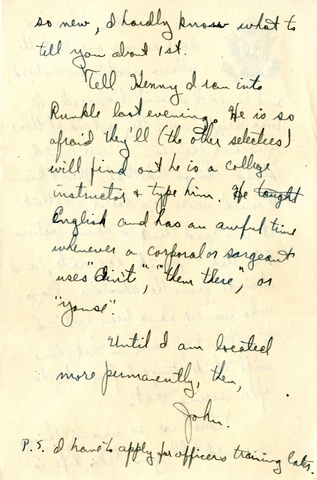 so new, I hardly know what to
tell you about 1st.
Tell Henny I ran into
Runkle last evening. He is so
afraid they'll (the other selectees)
will find out he is a college
instructor & type him. He taught
English and has an awful time
whenever a corporal or sargeant
uses "ain't", "them there", or
"youse".
Until I am located
more permanently, then,
John.
P.S. I have to apply for officers training later.